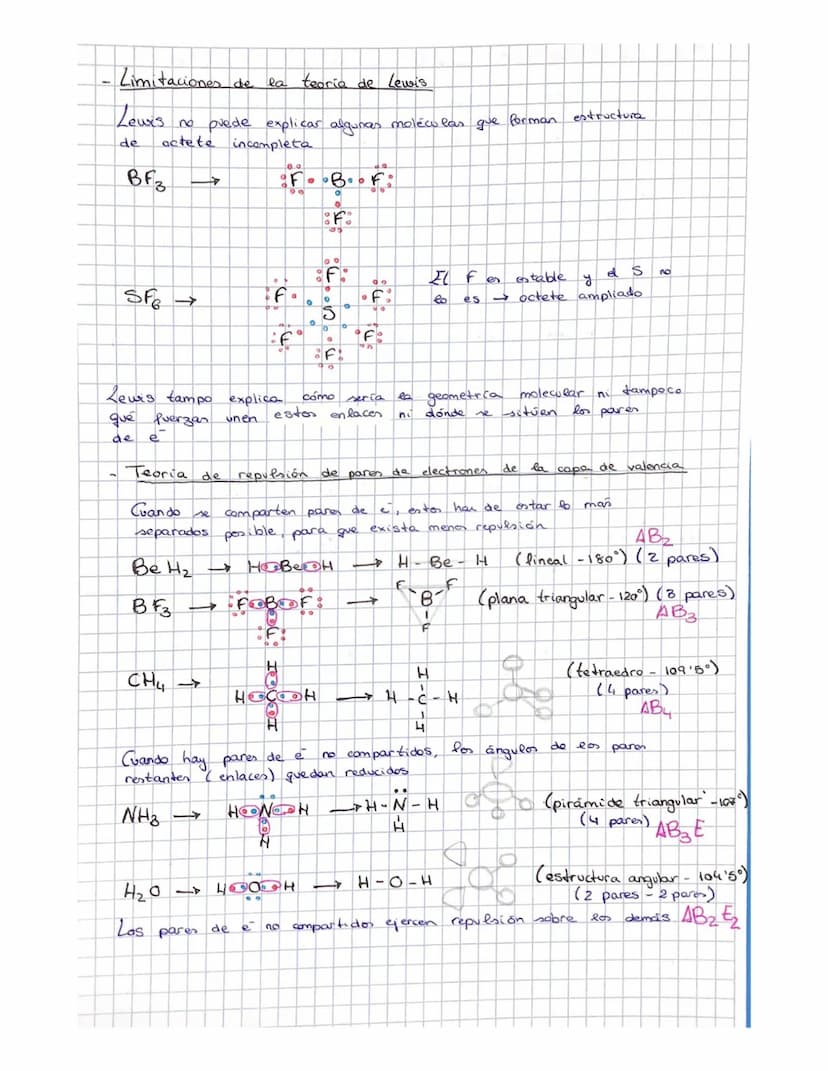 - Limitaciones de la teoría de Lewis
Lewis no puede explicar algunas moléculas que forman estructura
de octete incompleta
BF3 → F B F
F
F
SF6 → F F
S
F F
F
El F es estable y el S no
lo es → octete ampliado
Lewis tampo explica cómo sería la geometría molecular ni tampoco
qué fuerzas unen estos enlaces ni dónde se sitúen los pares
de e-
- Teoría de repulsión de pares de electrones de la capa de valencia
Cuando se comparten pares de e-, estos han de estar lo más
separados posible, para que exista menos repulsión
AB2
BeH2 → H Be H → H - Be - H (lineal - 180°) (2 pares)
BF3 → F B F → F B F (plana triangular - 120°) (3 pares)
F F AB3
H H
CH4 → H C H → H - C - H (tetraedro - 109'5°)
H H (4 pares)
AB4
Cuando hay pares de e- no compartidos, los ángulos de los pares
restantes (enlaces) quedan reducidos
NH3 → H N H → H - N - H (pirámide triangular - 107°)
H H (4 pares) AB3E
H2O → H O H → H - O - H (estructura angular - 104'5°)
(2 pares - 2 pares)
Los pares de e- no compartidos ejercen repulsión sobre los demás AB2E2